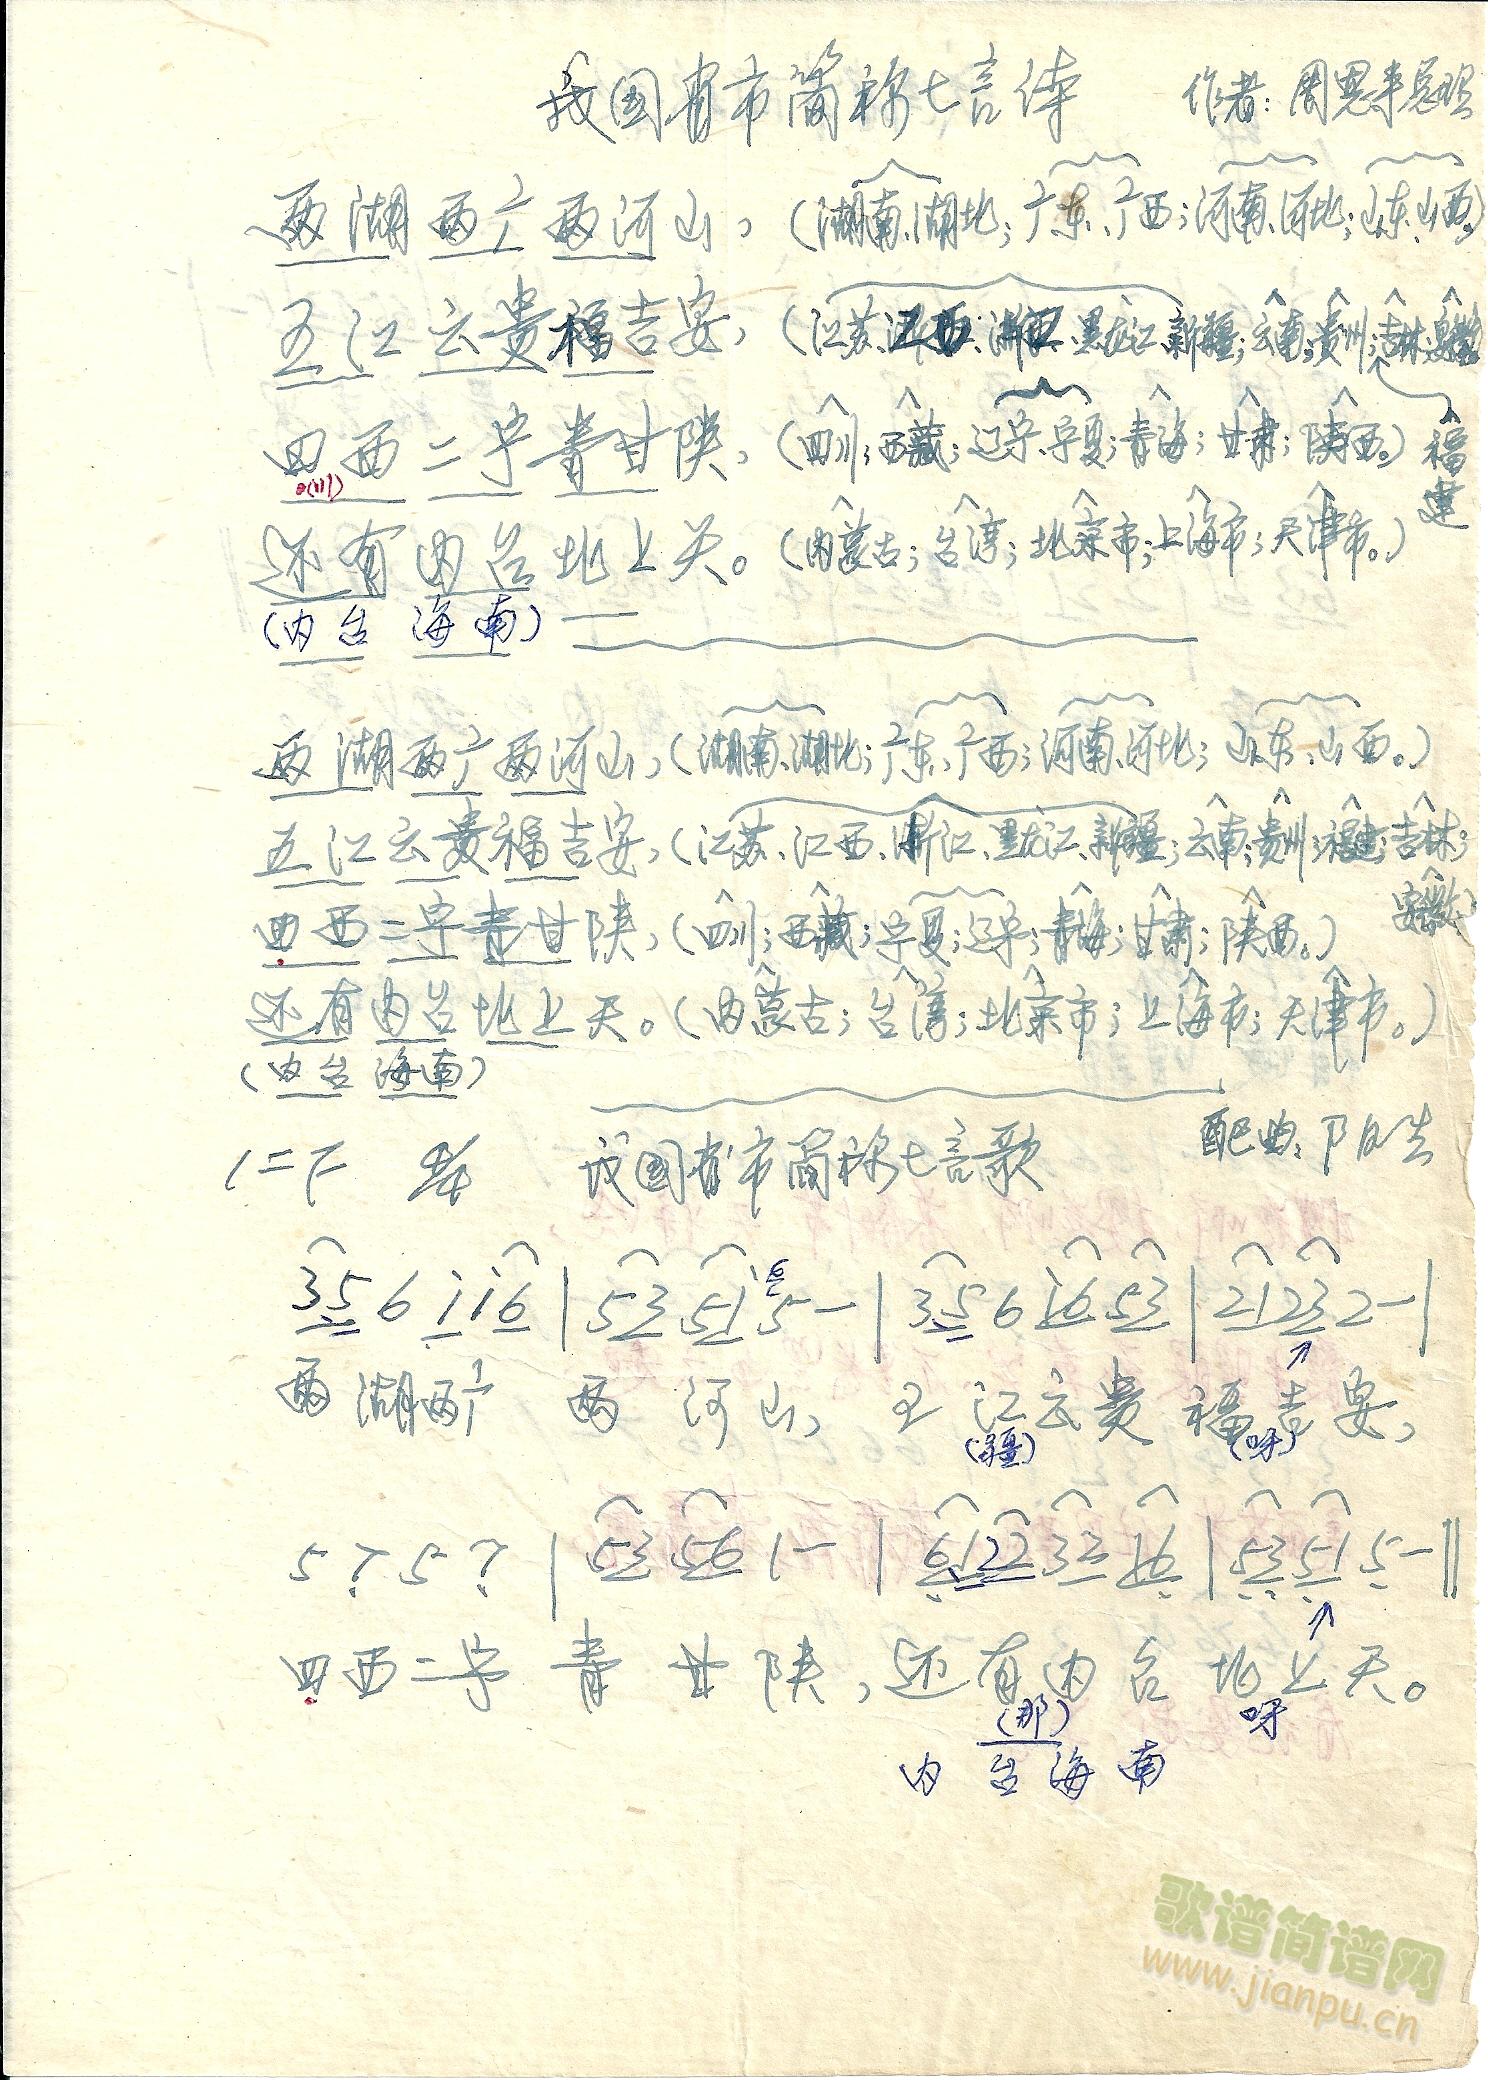 我国省市简称七言体 作者:周恩来总理
两湖两广两河山,(湖南、湖北;广东、广西;河南、河北;山东、山西。)
五江云贵福吉安,(江苏、江西、浙江、黑龙江、新疆;云南;贵州;吉林;安徽
四西二宁青甘陕,(四川;西藏;辽宁、宁夏;青海;甘肃;陕西。)福建
(川)
还有内台北上天。(内蒙古;台湾;北京市;上海市;天津市。)
(内台海南)
两湖两广两河山,(湖南、湖北;广东、广西;河南、河北;山东、山西。)
五江云贵福吉安,(江苏、江西、浙江、黑龙江、新疆;云南;贵州;福建;吉林;
安徽)
四西二宁青甘陕,(四川;西藏;宁夏;辽宁;青海;甘肃;陕西。)
还有内台北上天。(内蒙古;台湾;北京市;上海市;天津市。)
(内台海南)
配曲:
1=F 4/4 我国省市简称七言歌
35 6 i i6 | 53 5i 6 5 — | 35 6 i6 53 | 21 23 2 — |
两湖两广 两河山, 五江云贵福吉安,
(疆) (呀)
5 ? 5 ? | 53 56 1 — | 6122 32 16 | 53 51 5 — ‖
四西二宁青甘陕,还有内台北上天。
(那) 呀
内台海南
歌谱简谱网
www.jianpu.cn